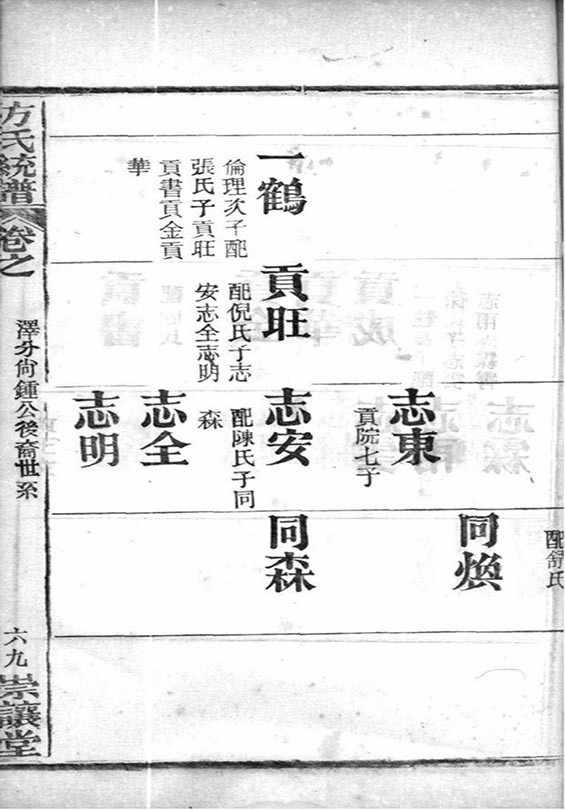 一鶴
倫理次子配
張氏子貢旺
貢書貢金貢
華
貢旺
配倪氏子志
安志全志明
志東
貢院七子
志安
配陳氏子同
森
志全
志明
配舒氏
同煥
同森
方氏統譜
卷之
澤分尙鍾公後裔世系
六九
崇讓堂